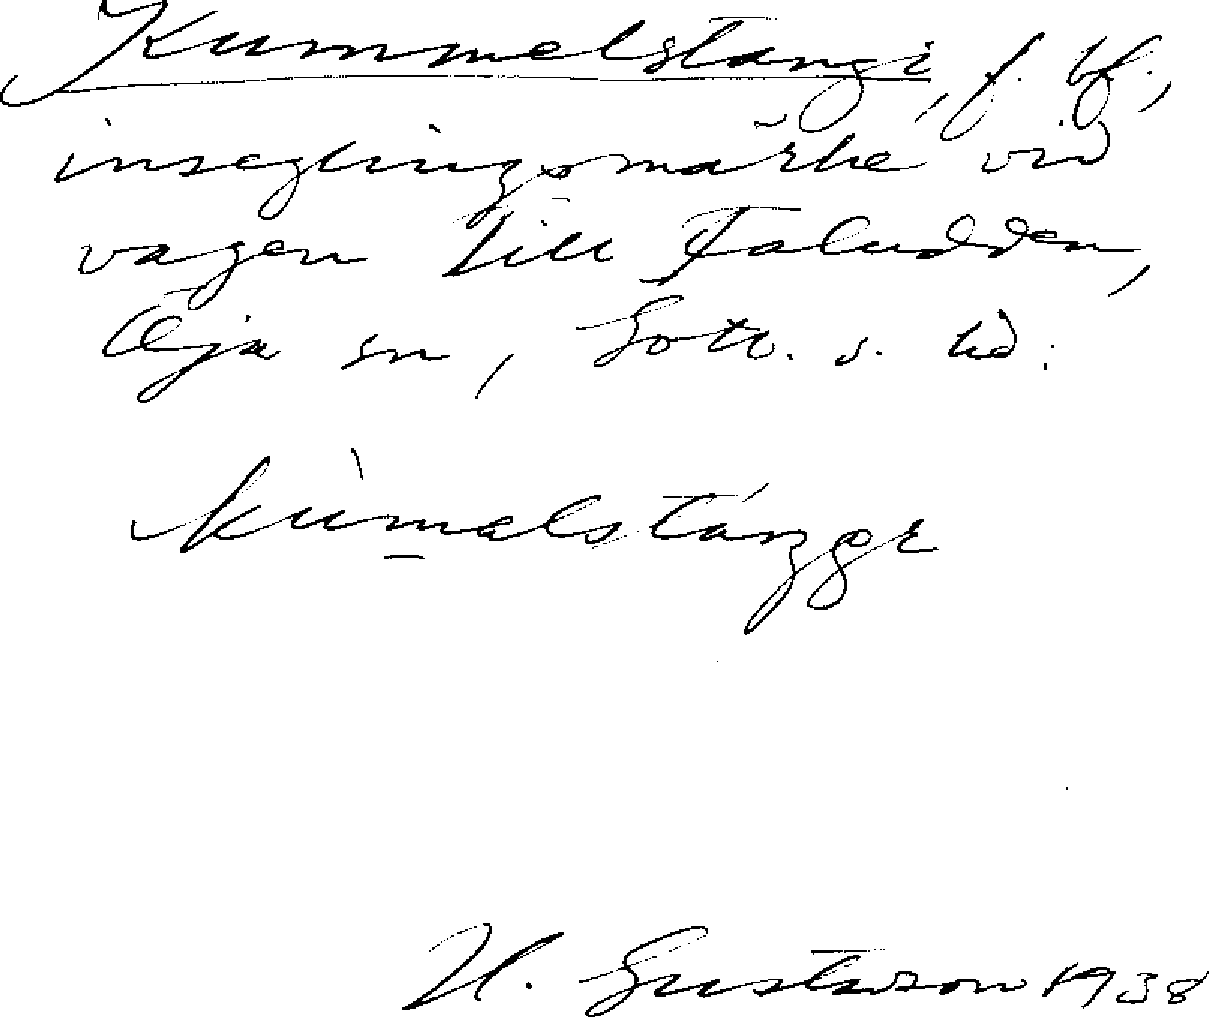 Kummelstangi, f. bf.,
inseglingsmärke vid
vägen till Faludden,
Öja sn, Gotl. s. hd.
kùmalstánggɩ
H. Gustavson 1938